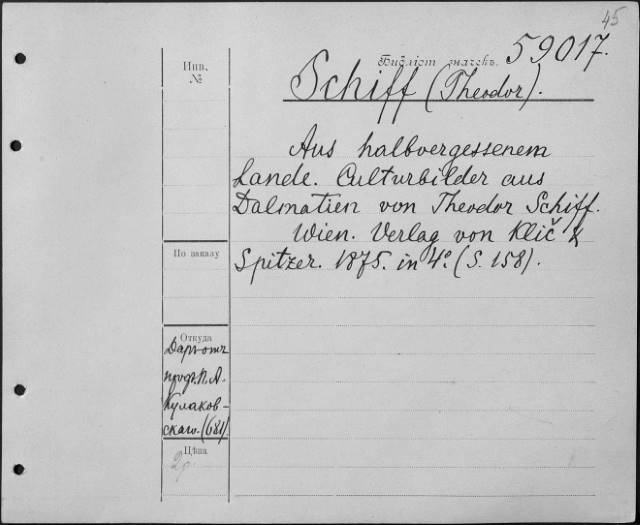 45
Инв.
№
Библіот. значекъ. 59017.
Schiff (Theodor).
Aus halbvergessenem
Lande. Culturbilder aus
Dalmatien von Theodor Schiff.
Wien. Verlag von Klič &
Spitzer. 1875. in 4º. (S. 158).
По заказу
Откуда
Даръ отъ
проф. П. А.
Кулаков-
скаго. (681)
Цѣна
2р.